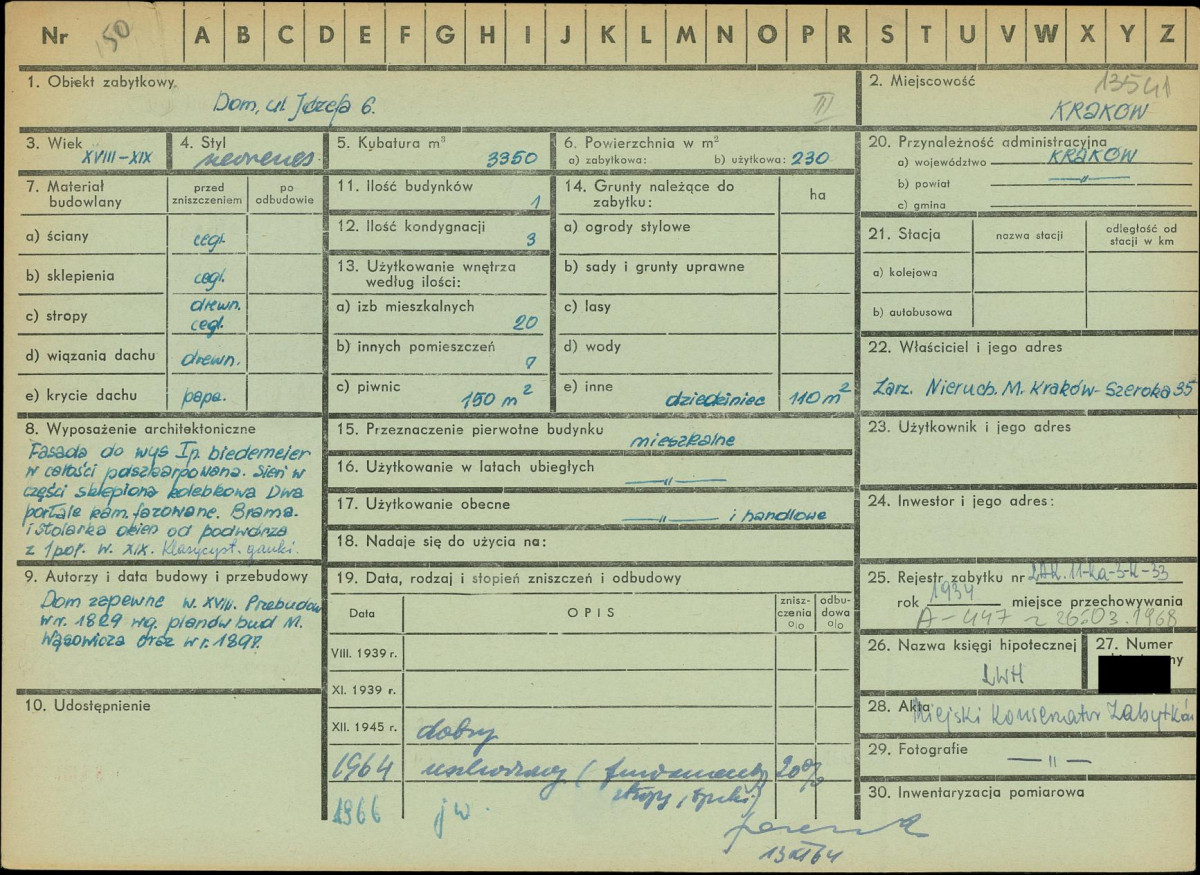 Nr 150 A B C D E F G H I J K L M N O P R S T U V W X Y Z
1. Obiekt zabytkowy
Dom, ul Józefa 6.
III
2. Miejscowość
13541
KRAKÓW
3. Wiek
XVIII-XIX
4. Styl
neorenes.
5. Kubatura m³
3350
6. Powierzchnia w m²
a) zabytkowa: b) użytkowa: 230
20. Przynależność administracyjna
a) województwo KRAKÓW
b) powiat —"—
c) gmina
7. Materiał budowlany
przed zniszczeniem
po odbudowie
a) ściany cegl.
b) sklepienia cegl.
c) stropy drewn.
cegl.
d) wiązania dachu drewn.
e) krycie dachu papa.
11. Ilość budynków
1
12. Ilość kondygnacji
3
13. Użytkowanie wnętrza
według ilości:
a) izb mieszkalnych
20
b) innych pomieszczeń
7
c) piwnic
150 m²
14. Grunty należące do
zabytku:
ha
a) ogrody stylowe
b) sady i grunty uprawne
c) lasy
d) wody
e) inne
dziedziniec 110 m²
21. Stacja
nazwa stacji
odległość od
stacji w km
a) kolejowa
b) autobusowa
22. Właściciel i jego adres
Zarz. Nieruch. M. Kraków-Szeroka 35
8. Wyposażenie architektoniczne
Fasada do wys I p. biedemeier
w całości poszkarpowana. Sień w
części sklepiona kolebkowa Dwa
portale kam. fazowane. Brama.
i stolarka okien od podwórza
z 1 poł. w. XIX. Klasycyst. ganki.
15. Przeznaczenie pierwotne budynku
mieszkalne
16. Użytkowanie w latach ubiegłych
—"—
17. Użytkowanie obecne
—"— i handlowe
18. Nadaje się do użycia na:
23. Użytkownik i jego adres
24. Inwestor i jego adres:
9. Autorzy i data budowy i przebudowy
Dom zapewne w. XVIII. Przebudow
w r. 1829 wg. planów bud M.
Wąsowicza oraz w r. 1897.
10. Udostępnienie
19. Data, rodzaj i stopień zniszczeń i odbudowy
Data
OPIS
znisz-
czenia
%
odbu-
dowa
%
VIII. 1939 r.
XI. 1939 r.
XII. 1945 r.
dobry
1964 uszkodzony (fundamenty 20%
stropy,
1966 j w.
13 XI 64
25. Rejestr zabytku nr LAK.11-Ka-3-K-33
rok 1934 miejsce przechowywania
A-447 z 26.03.1968
26. Nazwa księgi hipotecznej
LWH
27. Numer
28. Akta
Miejski Konserwator Zabytków
29. Fotografie
—"—
30. Inwentaryzacja pomiarowa